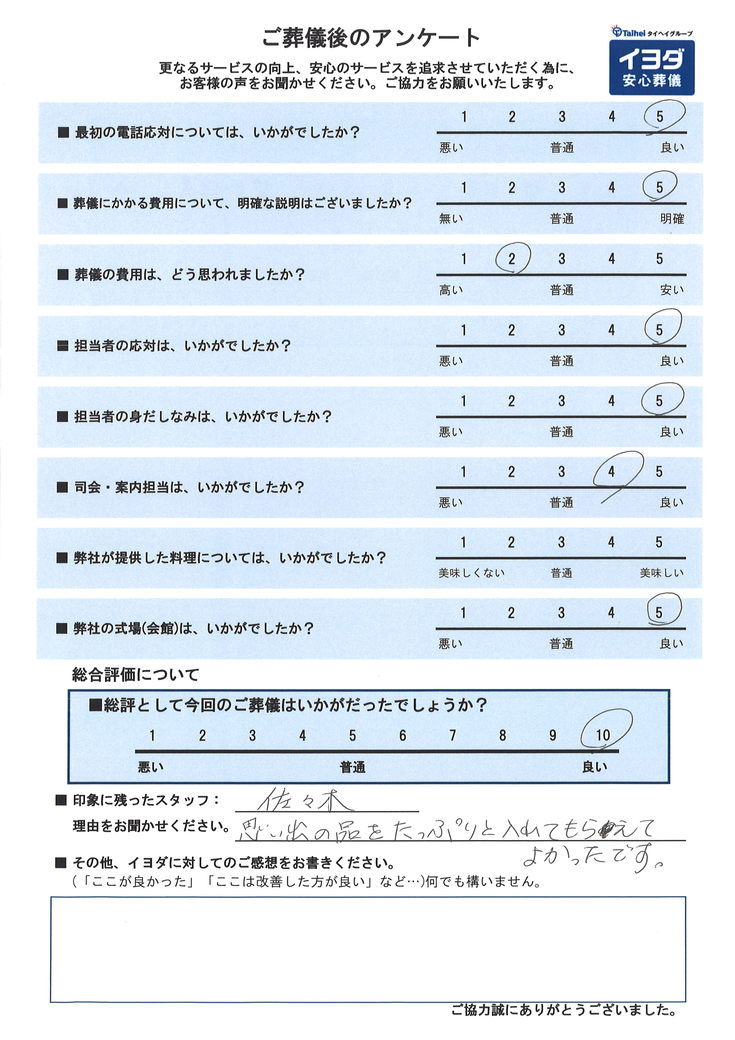 ご葬儀後のアンケート
Taihei タイヘイグループ
イヨダ
安心葬儀
更なるサービスの向上、安心のサービスを追求させていただく為に、
お客様の声をお聞かせください。ご協力をお願いいたします。
■ 最初の電話応対については、いかがでしたか？
1 2 3 4 5
悪い 普通 良い
■ 葬儀にかかる費用について、明確な説明はございましたか？
1 2 3 4 5
無い 普通 明確
■ 葬儀の費用は、どう思われましたか？
1 2 3 4 5
高い 普通 安い
■ 担当者の応対は、いかがでしたか？
1 2 3 4 5
悪い 普通 良い
■ 担当者の身だしなみは、いかがでしたか？
1 2 3 4 5
悪い 普通 良い
■ 司会・案内担当は、いかがでしたか？
1 2 3 4 5
悪い 普通 良い
■ 弊社が提供した料理については、いかがでしたか？
1 2 3 4 5
美味しくない 普通 美味しい
■ 弊社の式場(会館)は、いかがでしたか？
1 2 3 4 5
悪い 普通 良い
総合評価について
■総評として今回のご葬儀はいかがだったでしょうか？
1 2 3 4 5 6 7 8 9 10
悪い 普通 良い
■ 印象に残ったスタッフ： 佐々木
理由をお聞かせください。 思い出の品をたっぷりと入れてもらえて
よかったです。
■ その他、イヨダに対してのご感想をお書きください。
(「ここが良かった」「ここは改善した方が良い」など…)何でも構いません。
ご協力誠にありがとうございました。